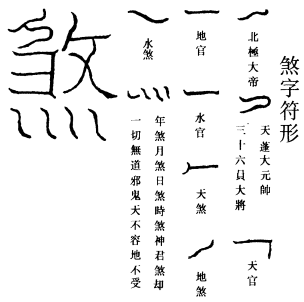 煞字符形
北極大帝
天蓬大元帥
三十六員大將
天官
地官
水官
天煞
地煞
水煞
年煞月煞日煞時煞神君煞却
一切無道邪鬼天不容地不受
煞